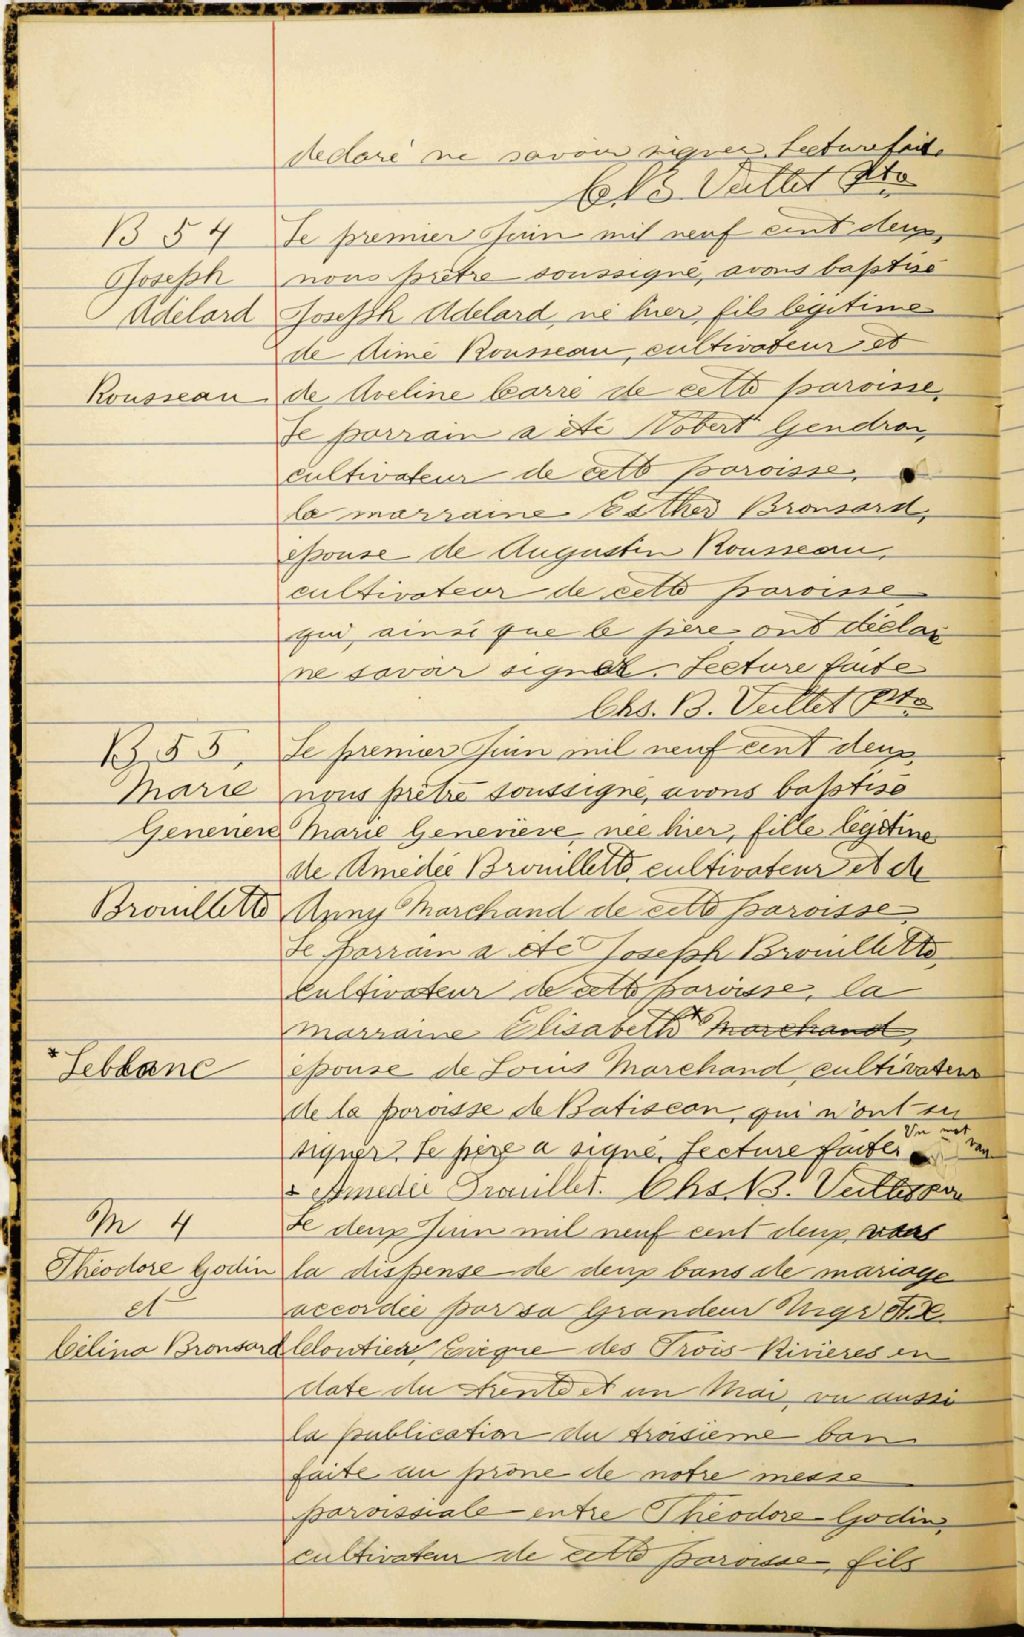 declaré ne savoir signer. Lecture faite
C. B. Veillet Ptre
B 54
Joseph
Adélard
Rousseau
Le premier Juin mil neuf cent deux,
nous prêtre soussigné, avons baptisé
Joseph Adélard, né hier, fils légitime
de Aimé Rousseau, cultivateur et
de Aveline Carré de cette paroisse.
Le parrain a été Nobert Gendron,
cultivateur de cette paroisse,
la marraine Esther Bronsard,
épouse de Augustin Rousseau,
cultivateur de cette paroisse
qui, ainsi que le père ont déclaré
ne savoir signer. Lecture faite
Chs. B. Veillet Ptre
B 55,
Marie
Geneviève
Brouillette
*Leblanc
Le premier Juin mil neuf cent deux,
nous prêtre soussigné, avons baptisé
Marie Geneviève née hier, fille légitime
de Amédée Brouillette, cultivateur et de
Anny Marchand de cette paroisse.
Le parrain a été Joseph Brouillette,
cultivateur de cette paroisse, la
marraine Elisabeth * Marchand,
épouse de Louis Marchand, cultivateur
de la paroisse de Batiscan, qui n'ont su
signer. Le père a signé. Lecture faite. Un mot
+ Amedée Brouillet. Chs. B. Veillet Ptre
M 4
Théodore Godin
et
Célina Bronsard
Le deux Juin mil neuf cent deux,
la dispense de deux bans de mariage
accordée par sa Grandeur Mgr F.X.
Cloutier, Evêque des Trois-Rivières en
date du trente et un Mai, vu aussi
la publication du troisième ban
faite au prône de notre messe
paroissiale entre Théodore Godin,
cultivateur de cette paroisse, fils